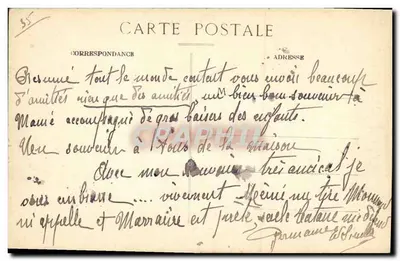 35
CARTE POSTALE
CORRESPONDANCE
ADRESSE
Resumé tout le monde content vous envois beaucoup
d'amitiés rien que des amitiés un bien bon souvenir à
Mamé accompagné de gros baisers des enfants.
Un souvenir à tous de la maison
Avec mon souvenir très amical je
vous embrasse .... vivement Mémé
m'appelle et Marraine est prête
Germaine